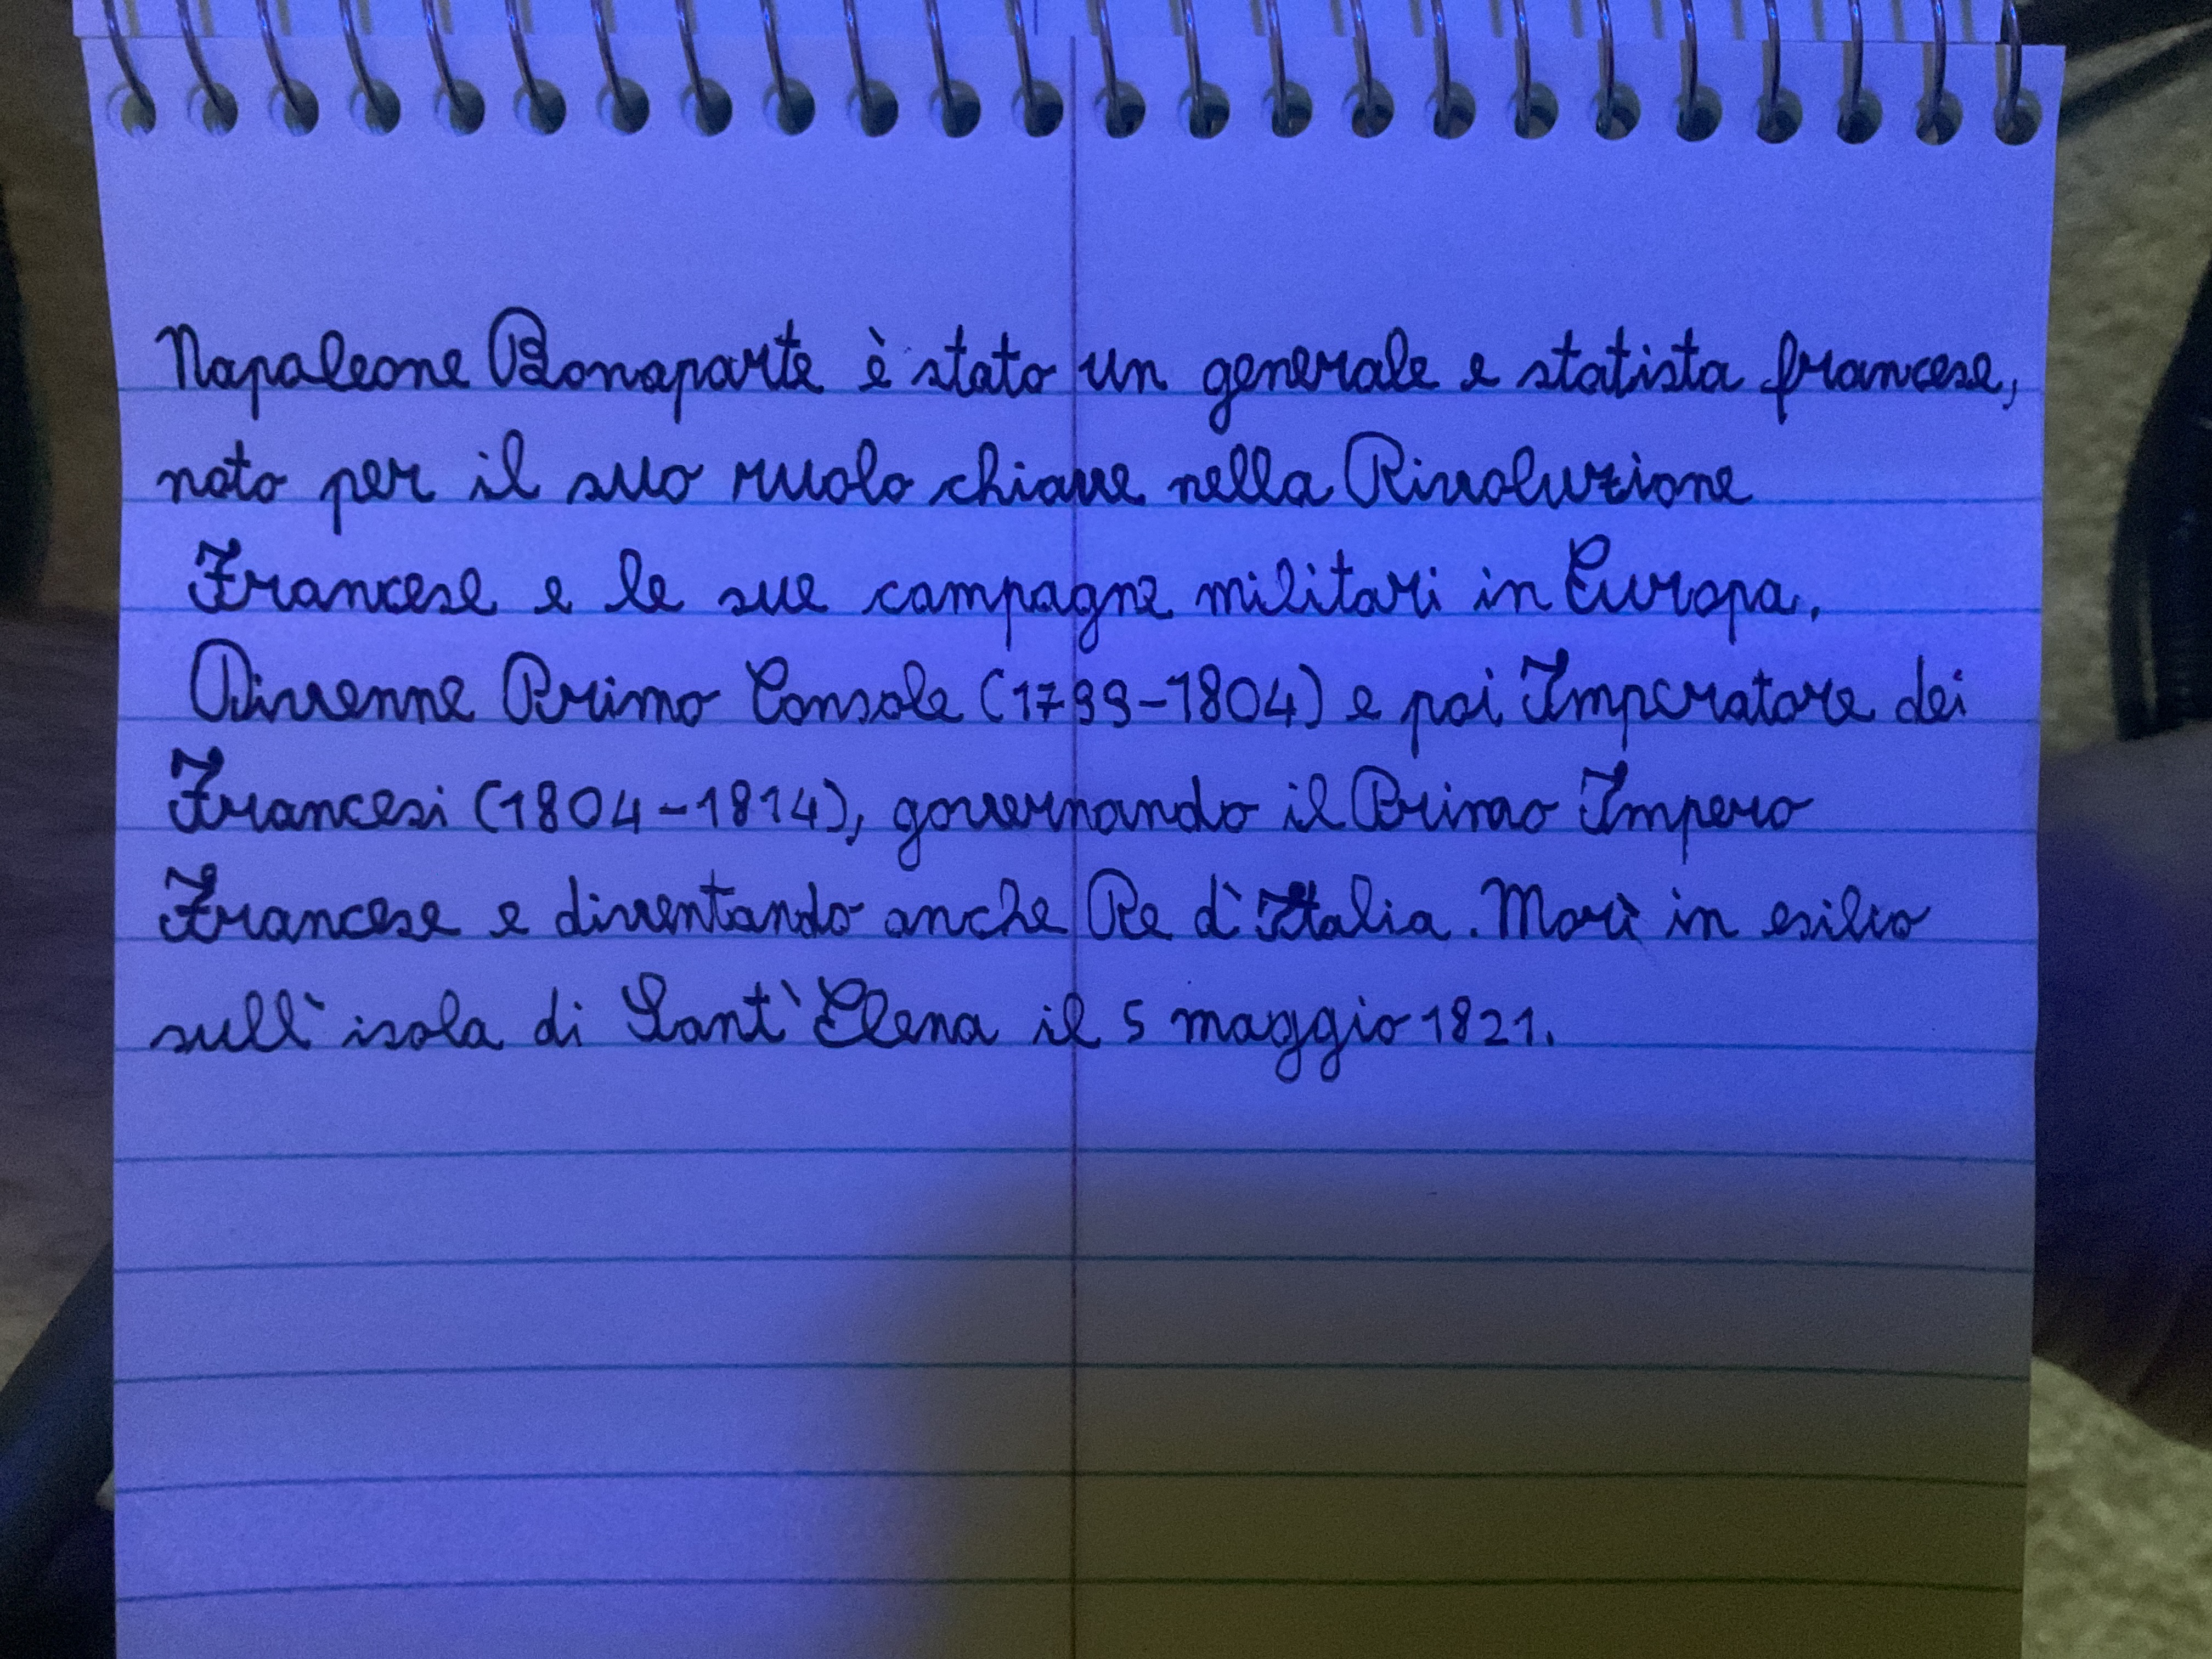 Napoleone Bonaparte è stato un generale e statista francese,
noto per il suo ruolo chiave nella Rivoluzione
Francese e le sue campagne militari in Europa.
Divenne Primo Console (1799-1804) e poi Imperatore dei
Francesi (1804-1814), governando il Primo Impero
Francese e diventando anche Re d'Italia. Morì in esilio
sull'isola di Sant'Elena il 5 maggio 1821.